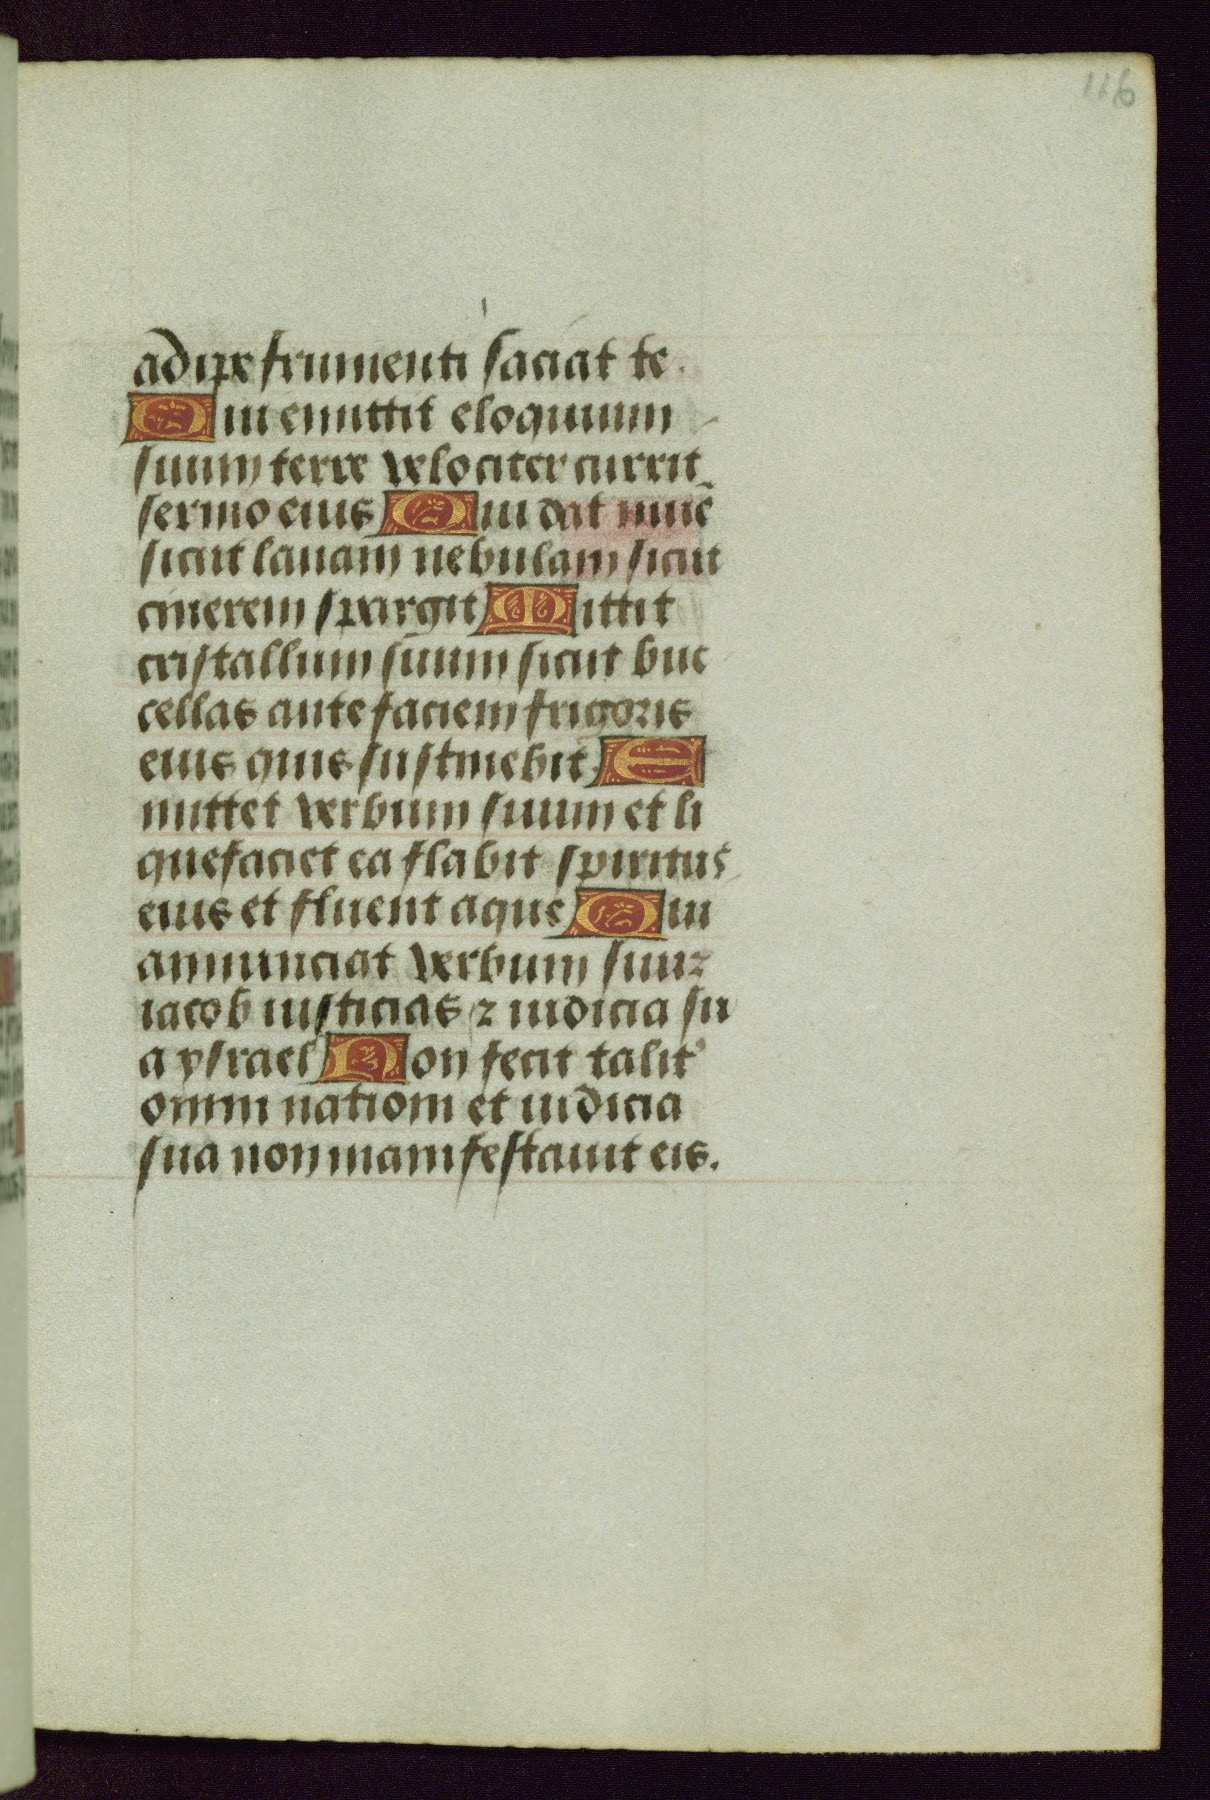 116
adipe frumenti saciat te.
Qui emittit eloquium
suum terre velociter currit
sermo eius Qui dat niuē
sicut lanam nebulam sicut
cinerem spargit Mittit
cristallum suum sicut buc
cellas ante faciem frigoris
eius quis sustinebit. E
mittet verbum suum et li
quefaciet ea flabit spiritus
eius et fluent aque Qui
annunciat verbum suuꝫ
iacob iusticias ⁊ iudicia su
a ysrael Non fecit talit᾽
omni nationi et iudicia
sua non manifestauit eis.